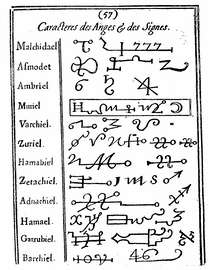 (57)
Caracteres des Anges & des Signes.
Malchidael
Asmodet
Ambriel
Muriel
Varchiel.
Zuriel.
Hamabiel
Zetachiel.
Adnachiel.
Hamael.
Gambiel.
Barchiel.